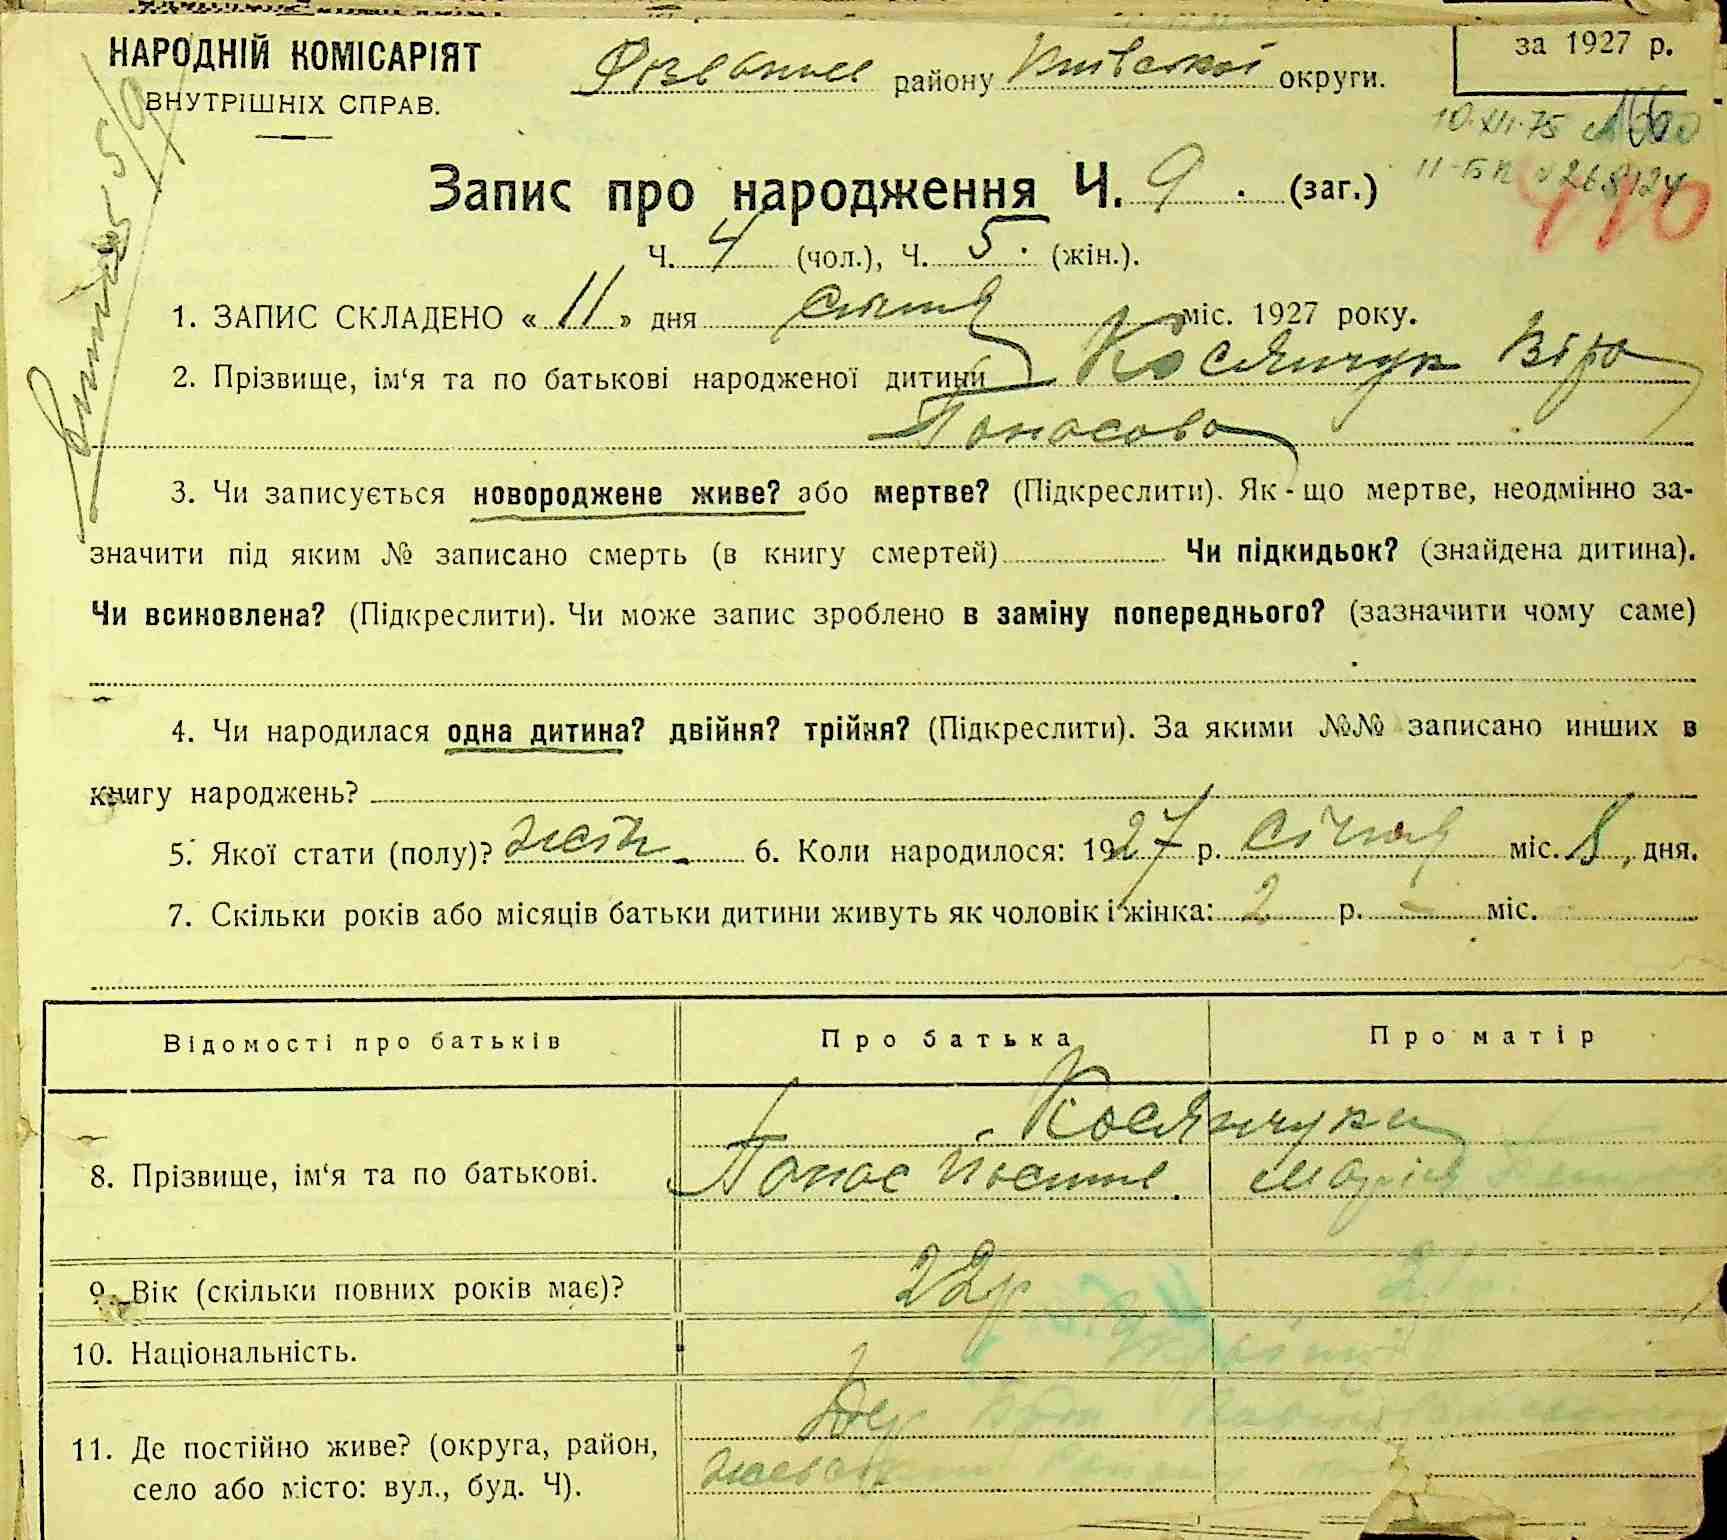 НАРОДНІЙ КОМІСАРІЯТ
ВНУТРІШНІХ СПРАВ.
району Київської округи.
за 1927 р.
10.XII.75
II-БК № 268124
Запис про народження Ч. 9. (заг.)
Ч. 4 (чол.), Ч. 5. (жін.).
1. ЗАПИС СКЛАДЕНО « 11 » дня січня міс. 1927 року.
2. Прізвище, ім‘я та по батькові народженої дитини Косянчук Віра
Панасова
3. Чи записується новороджене живе? або мертве? (Підкреслити). Як-що мертве, неодмінно за-
значити під яким № записано смерть (в книгу смертей) Чи підкидьок? (знайдена дитина).
Чи всиновлена? (Підкреслити). Чи може запис зроблено в заміну попереднього? (зазначити чому саме)
4. Чи народилася одна дитина? двійня? трійня? (Підкреслити). За якими №№ записано инших в
книгу народжень?
5. Якої стати (полу)? жін. 6. Коли народилося: 1927 р. січня міс. 8, дня.
7. Скільки років або місяців батьки дитини живуть як чоловік і жінка: 2 р. - міс.
Відомості про батьків Про батька Про матір
Косянчуки
8. Прізвище, ім‘я та по батькові. Панас Марія
9. Вік (скільки повних років має)? 22 р
10. Національність.
11. Де постійно живе? (округа, район,
село або місто: вул., буд. Ч).